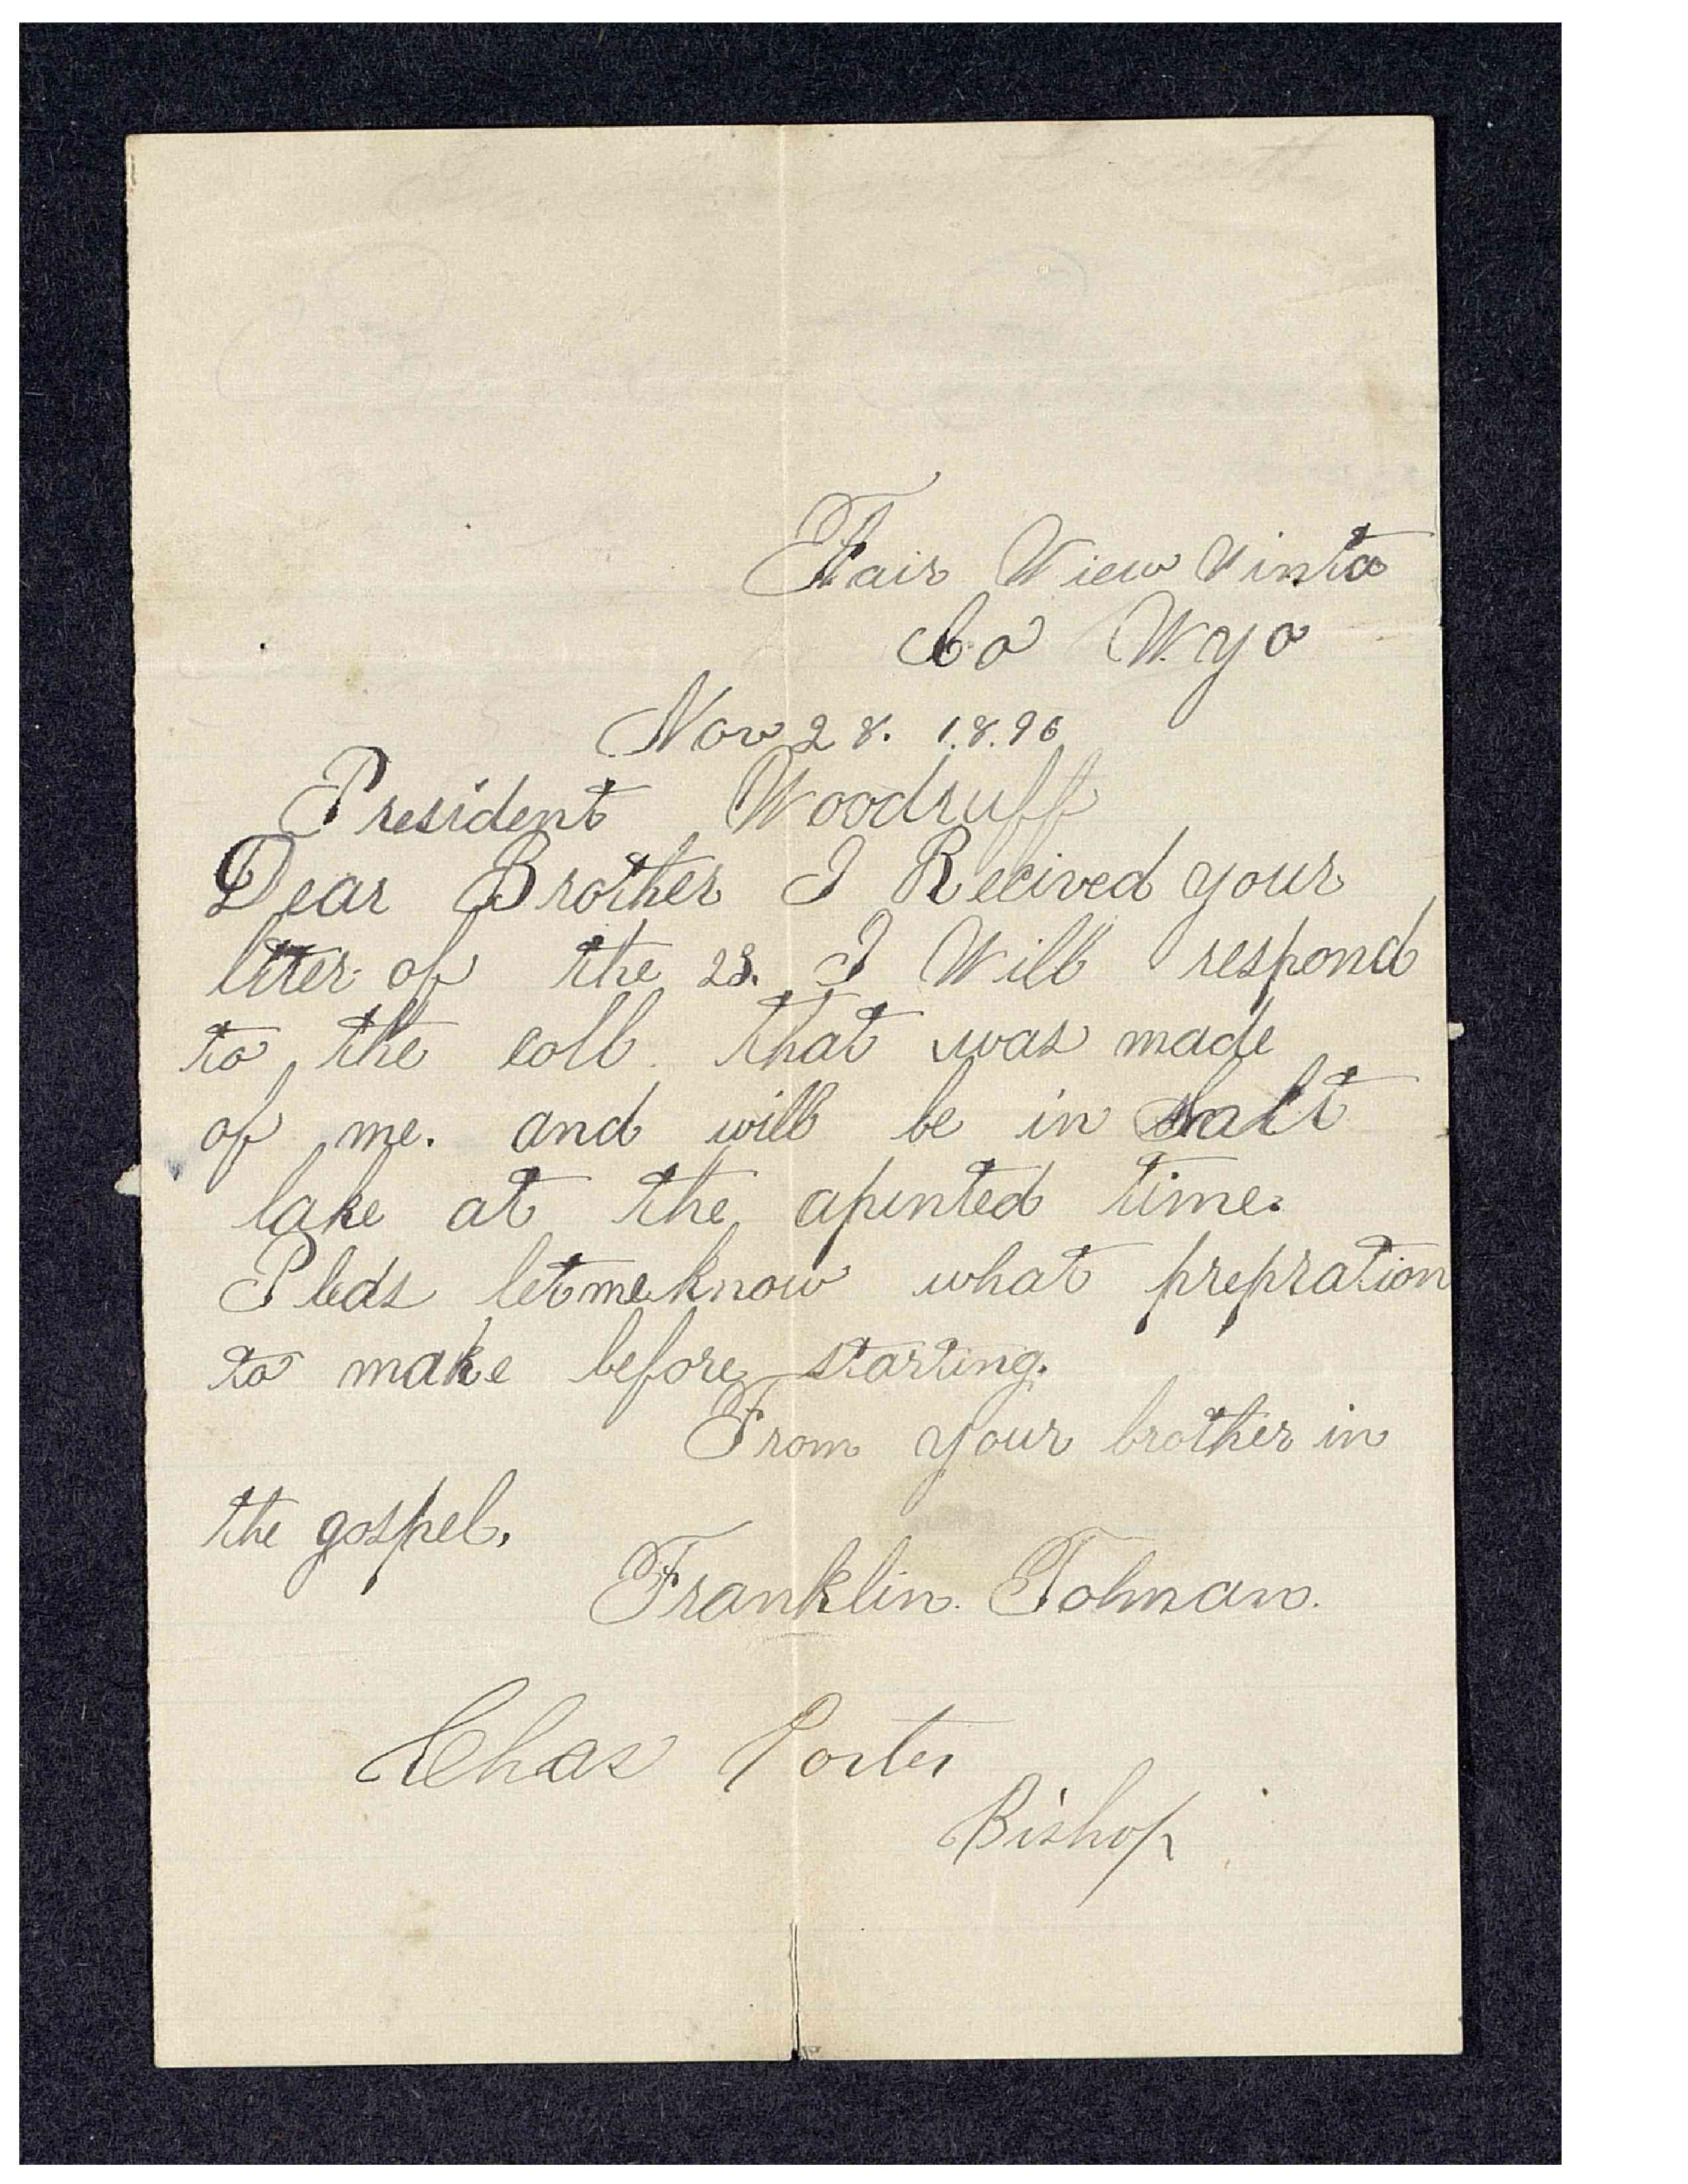 Fair View Uinta
Co Wyo
Nov 28. 1.8.96
President Woodruff
Dear Brother I Recived your
ltter of the 23. I Will respond
to the coll. that was made
of me. and will be in Salt
lake at the apinted time.
Pleas let me know what prepration
to make before starting.
From your brother in
the gospel.
Franklin. Tolman.
Chas Porter
Bishop